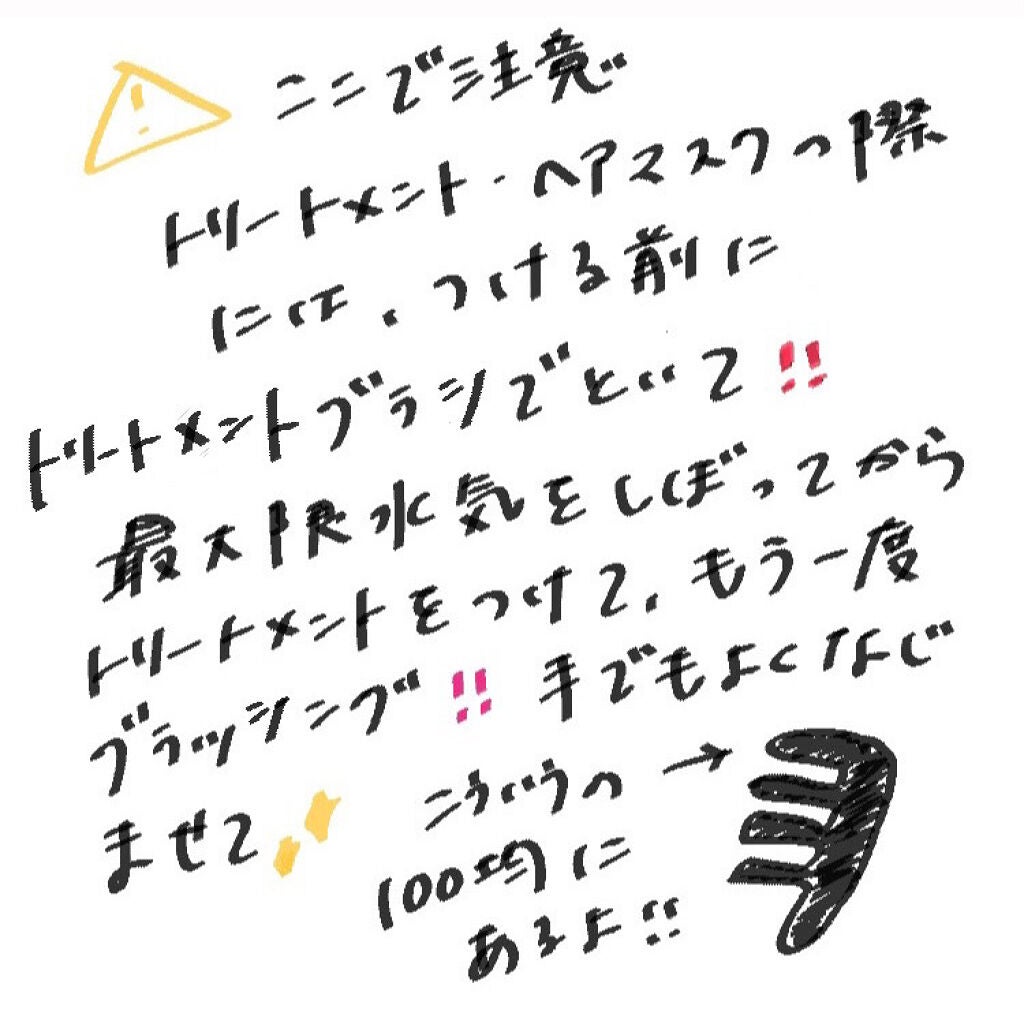 ここで注意
トリートメント・ヘアマスクの際
には、つける前に
トリートメントブラシでといて!!
最大限水気をしぼってから
トリートメントをつけて、もう一度
ブラッシング!! 手でもよくなじ
ませて
こういうの→
100均に
あるよ!!